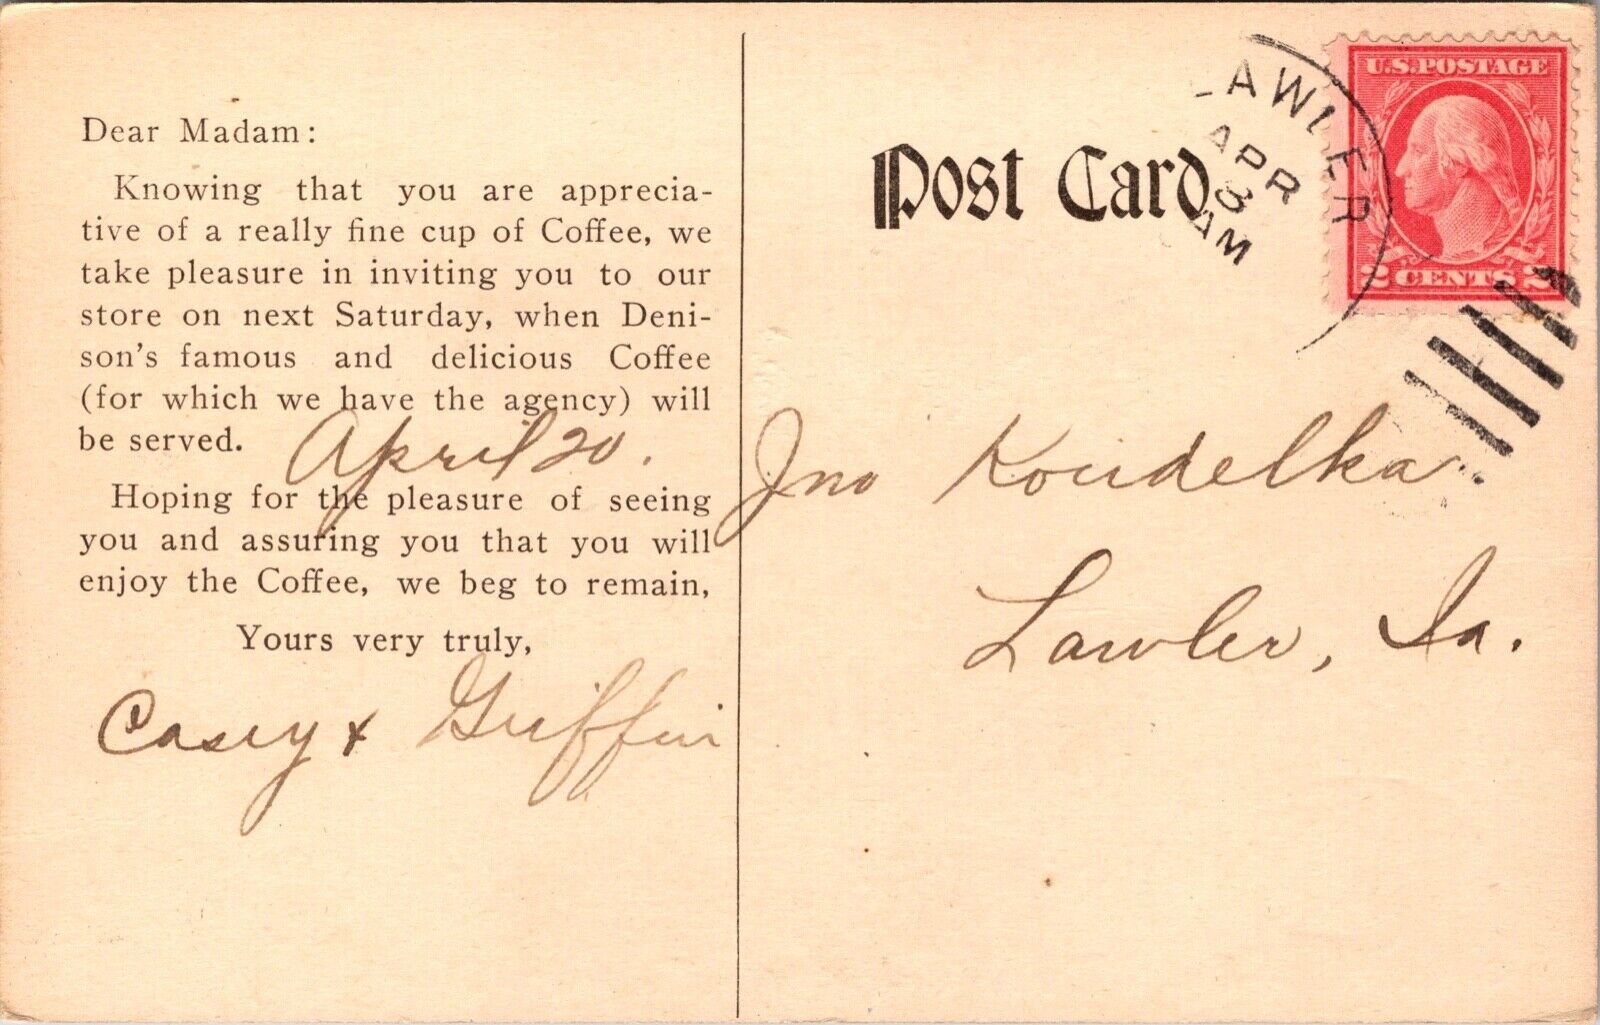 Dear Madam:
Knowing that you are apprecia-
tive of a really fine cup of Coffee, we
take pleasure in inviting you to our
store on next Saturday, when Deni-
son's famous and delicious Coffee
(for which we have the agency) will
be served. April 20.
Hoping for the pleasure of seeing
you and assuring you that you will
enjoy the Coffee, we beg to remain,
Yours very truly,
Casey & Griffin
Post Card
LAWLER
APR
AM
U.S. POSTAGE
2 CENTS 2
Jno Koudelka
Lawler, Ia.